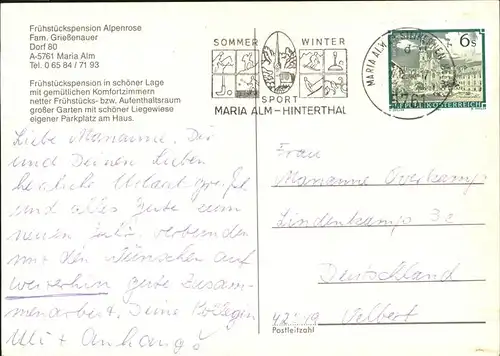 Frühstückspension Alpenrose
Fam. Grießenauer
Dorf 80
A-5761 Maria Alm
Tel. 0 65 84 / 71 93
Frühstückspension in schöner Lage
mit gemütlichen Komfortzimmern
netter Frühstücks- bzw. Aufenthaltsraum
großer Garten mit schöner Liegewiese
eigener Parkplatz am Haus.
SOMMER WINTER
SPORT
MARIA ALM-HINTERTHAL
MARIA ALM
5761
6 S
REPUBLIK ÖSTERREICH
Liebe Marianne, Dir
und Deinen Lieben
herzliche Urlaubsgrüße
und alles Gute zum
neuen Jahr, verbunden
mit den Wünschen auf
weiterhin gute Zusam-
menarbeit, Deine Kollegen
Uli + Anhang
Frau
Marianne Overkamp
Lindenkamp 3c
Deutschland
Velbert
Postleitzahl